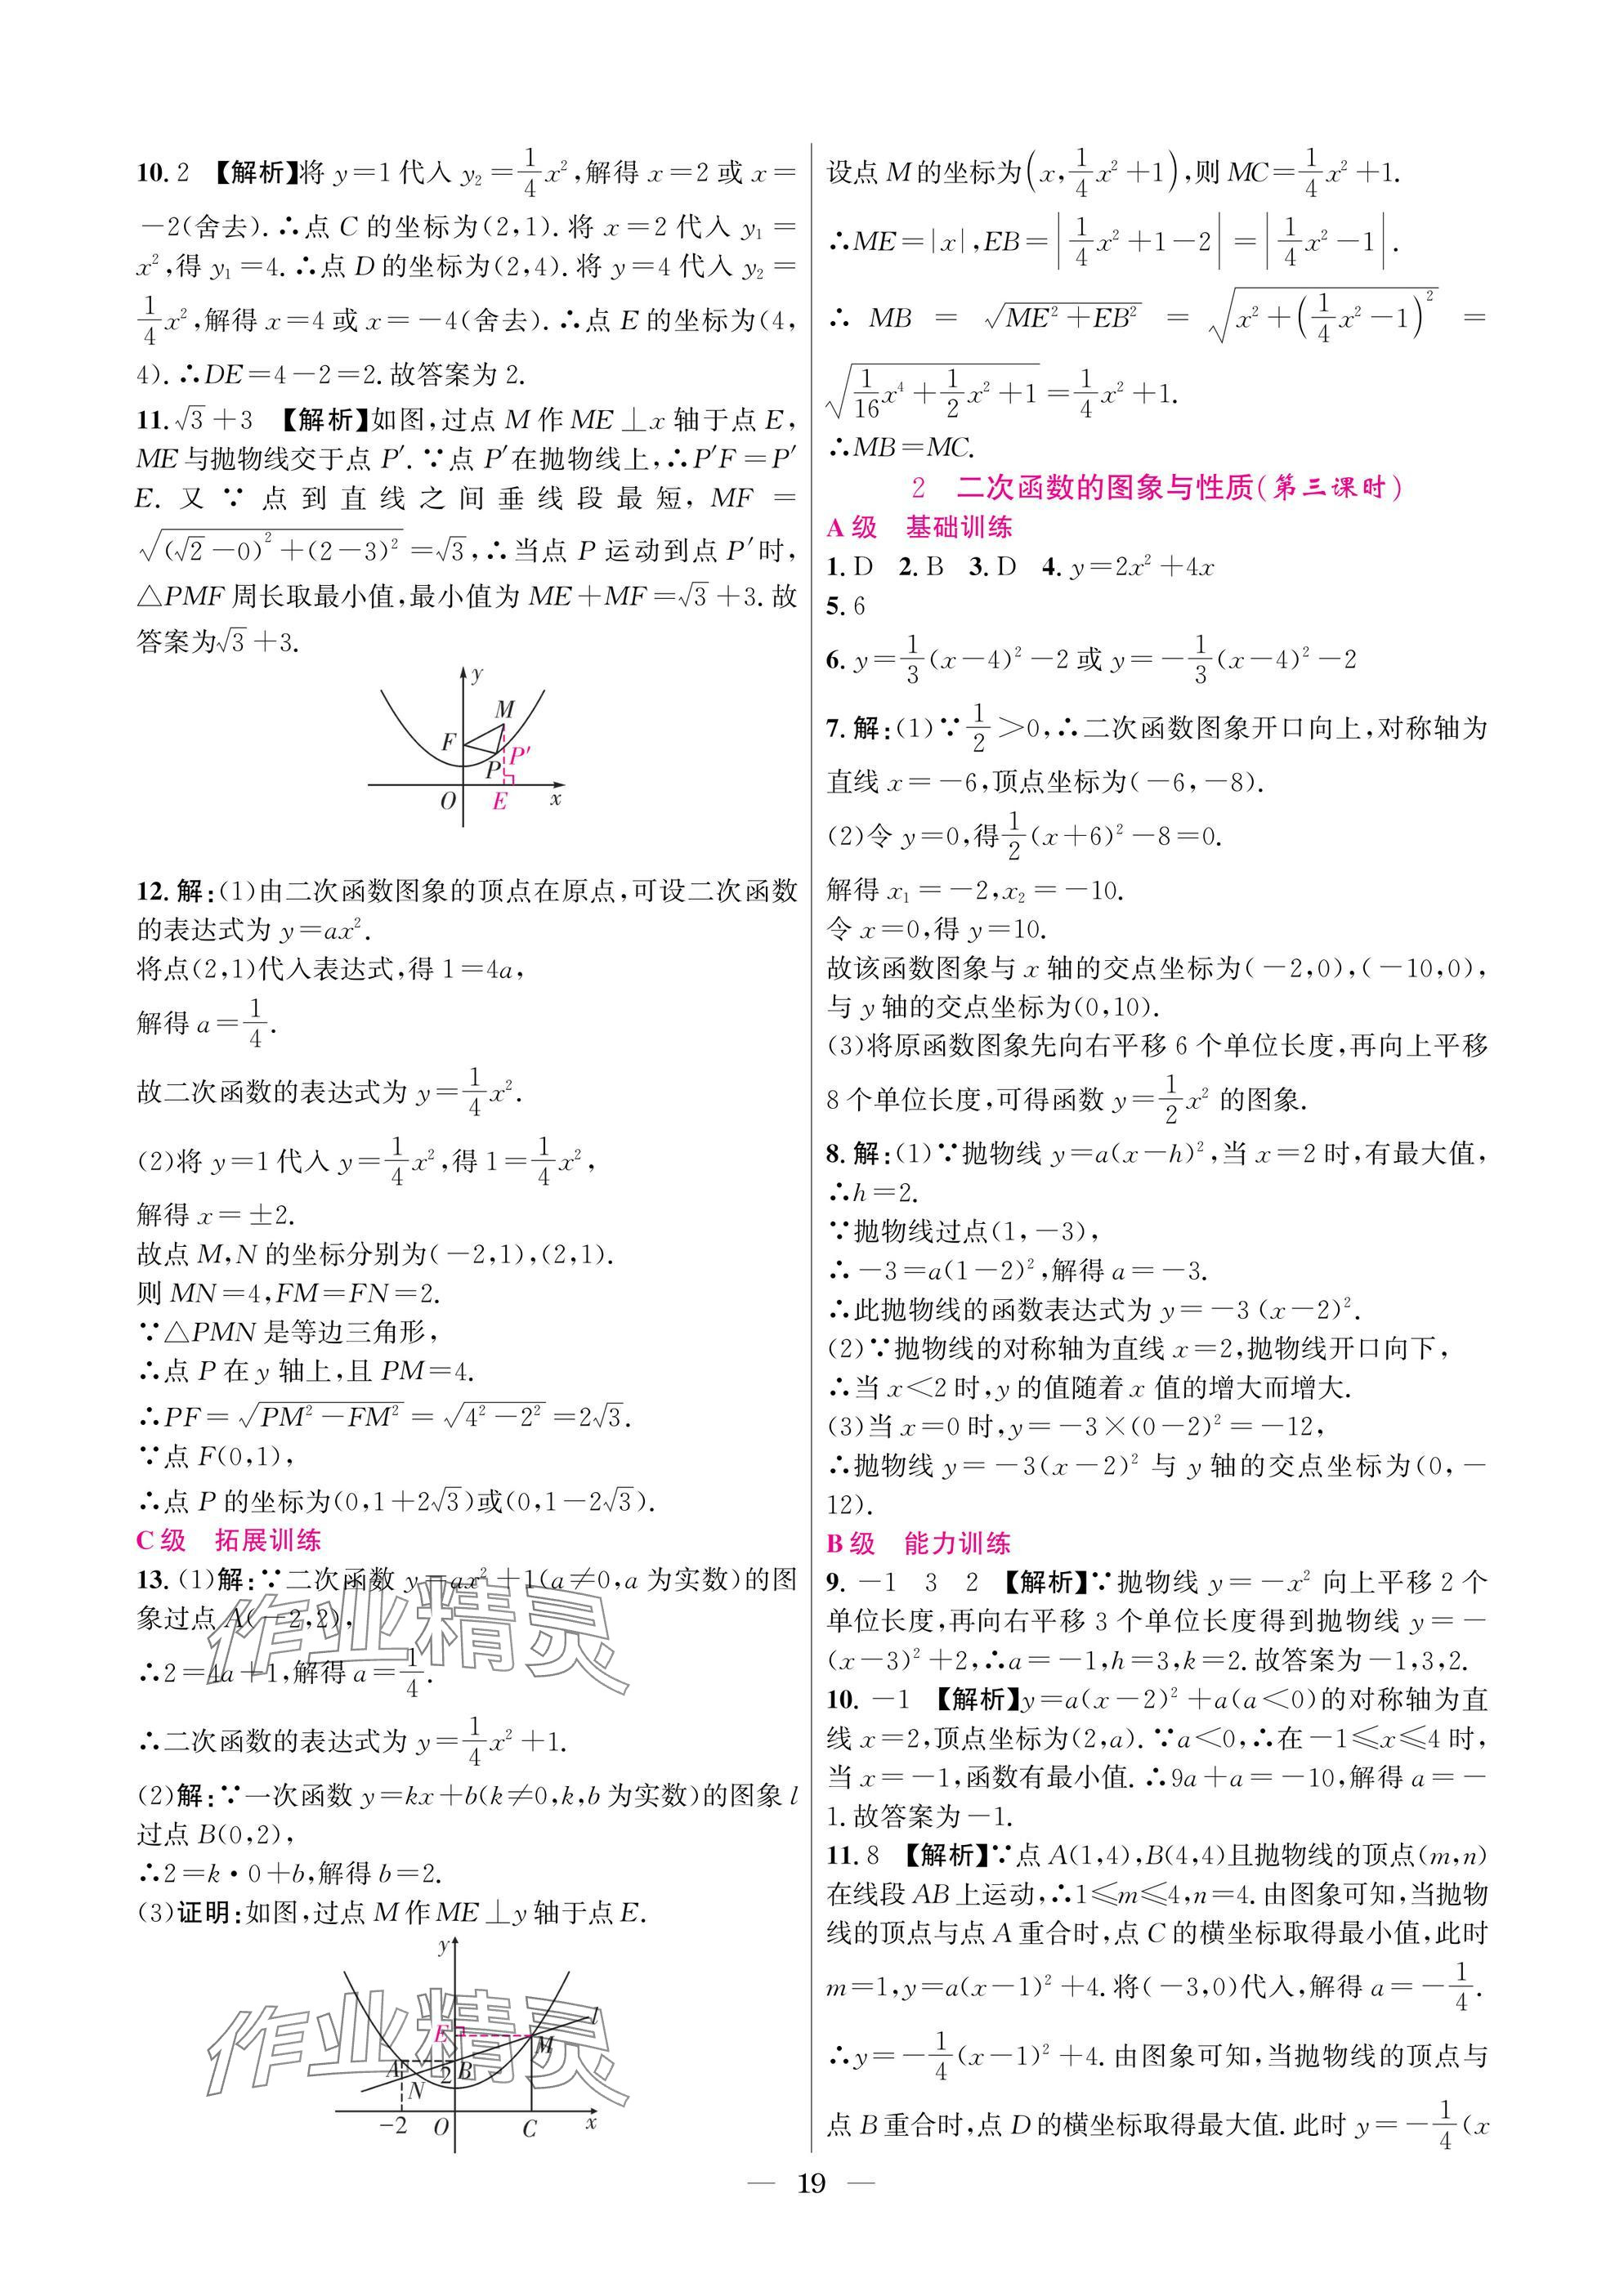 10. 2 【解析】将 y=1 代入 y₂=1/4x²,解得 x=2 或 x=
-2(舍去). ∴点 C 的坐标为(2,1). 将 x=2 代入 y₁=
x²,得 y₁=4. ∴点 D 的坐标为(2,4). 将 y=4 代入 y₂=
1/4x²,解得 x=4 或 x=-4(舍去). ∴点 E 的坐标为(4,
4). ∴DE=4-2=2. 故答案为 2.
11. √3+3 【解析】如图,过点 M 作 ME⊥x 轴于点 E,
ME 与抛物线交于点 P′. ∵点 P′在抛物线上,∴P′F=P′
E. 又 ∵ 点到直线之间垂线段最短, MF =
√((√2-0)²+(2-3)²)=√3,∴当点 P 运动到点 P′时,
△PMF 周长取最小值,最小值为 ME+MF=√3+3. 故
答案为√3+3.
y
M
F
P′
P
O
E
x
12. 解:(1)由二次函数图象的顶点在原点,可设二次函数
的表达式为 y=ax².
将点(2,1)代入表达式,得 1=4a,
解得 a=1/4.
故二次函数的表达式为 y=1/4x².
(2)将 y=1 代入 y=1/4x²,得 1=1/4x²,
解得 x=±2.
故点 M,N 的坐标分别为(-2,1),(2,1).
则 MN=4,FM=FN=2.
∵△PMN 是等边三角形,
∴点 P 在 y 轴上,且 PM=4.
∴PF=√(PM²-FM²)=√(4²-2²)=2√3.
∵点 F(0,1),
∴点 P 的坐标为(0,1+2√3)或(0,1-2√3).
C 级 拓展训练
13. (1)解:∵二次函数 y=ax²+1(a≠0,a 为实数)的图
象过点 A(-2,2),
∴2=4a+1,解得 a=1/4.
∴二次函数的表达式为 y=1/4x²+1.
(2)解:∵一次函数 y=kx+b(k≠0,k,b 为实数)的图象 l
过点 B(0,2),
∴2=k·0+b,解得 b=2.
(3)证明:如图,过点 M 作 ME⊥y 轴于点 E.
y
l
E
M
A
2
B
N
-2
O
C
x
作业精灵
作业精灵
设点 M 的坐标为(x,1/4x²+1),则 MC=1/4x²+1.
∴ME=|x|,EB=|1/4x²+1-2|=|1/4x²-1|.
∴ MB = √(ME²+EB²) = √(x²+(1/4x²-1)²) =
√(1/16x⁴+1/2x²+1)=1/4x²+1.
∴MB=MC.
2 二次函数的图象与性质(第三课时)
A 级 基础训练
1. D 2. B 3. D 4. y=2x²+4x
5. 6
6. y=1/3(x-4)²-2 或 y=-1/3(x-4)²-2
7. 解:(1)∵1/2>0,∴二次函数图象开口向上,对称轴为
直线 x=-6,顶点坐标为(-6,-8).
(2)令 y=0,得1/2(x+6)²-8=0.
解得 x₁=-2,x₂=-10.
令 x=0,得 y=10.
故该函数图象与 x 轴的交点坐标为(-2,0),(-10,0),
与 y 轴的交点坐标为(0,10).
(3)将原函数图象先向右平移 6 个单位长度,再向上平移
8 个单位长度,可得函数 y=1/2x² 的图象.
8. 解:(1)∵抛物线 y=a(x-h)²,当 x=2 时,有最大值,
∴h=2.
∵抛物线过点(1,-3),
∴-3=a(1-2)²,解得 a=-3.
∴此抛物线的函数表达式为 y=-3(x-2)².
(2)∵抛物线的对称轴为直线 x=2,抛物线开口向下,
∴当 x<2 时,y 的值随着 x 值的增大而增大.
(3)当 x=0 时,y=-3×(0-2)²=-12,
∴抛物线 y=-3(x-2)² 与 y 轴的交点坐标为(0,-
12).
B 级 能力训练
9. -1 3 2 【解析】∵抛物线 y=-x² 向上平移 2 个
单位长度,再向右平移 3 个单位长度得到抛物线 y=-
(x-3)²+2,∴a=-1,h=3,k=2. 故答案为-1,3,2.
10. -1 【解析】y=a(x-2)²+a(a<0)的对称轴为直
线 x=2,顶点坐标为(2,a). ∵a<0,∴在-1≤x≤4 时,
当 x=-1,函数有最小值. ∴9a+a=-10,解得 a=-
1. 故答案为-1.
11. 8 【解析】∵点 A(1,4),B(4,4)且抛物线的顶点(m,n)
在线段 AB 上运动,∴1≤m≤4,n=4. 由图象可知,当抛物
线的顶点与点 A 重合时,点 C 的横坐标取得最小值,此时
m=1,y=a(x-1)²+4. 将(-3,0)代入,解得 a=-1/4.
∴y=-1/4(x-1)²+4. 由图象可知,当抛物线的顶点与
点 B 重合时,点 D 的横坐标取得最大值. 此时 y=-1/4(x
— 19 —